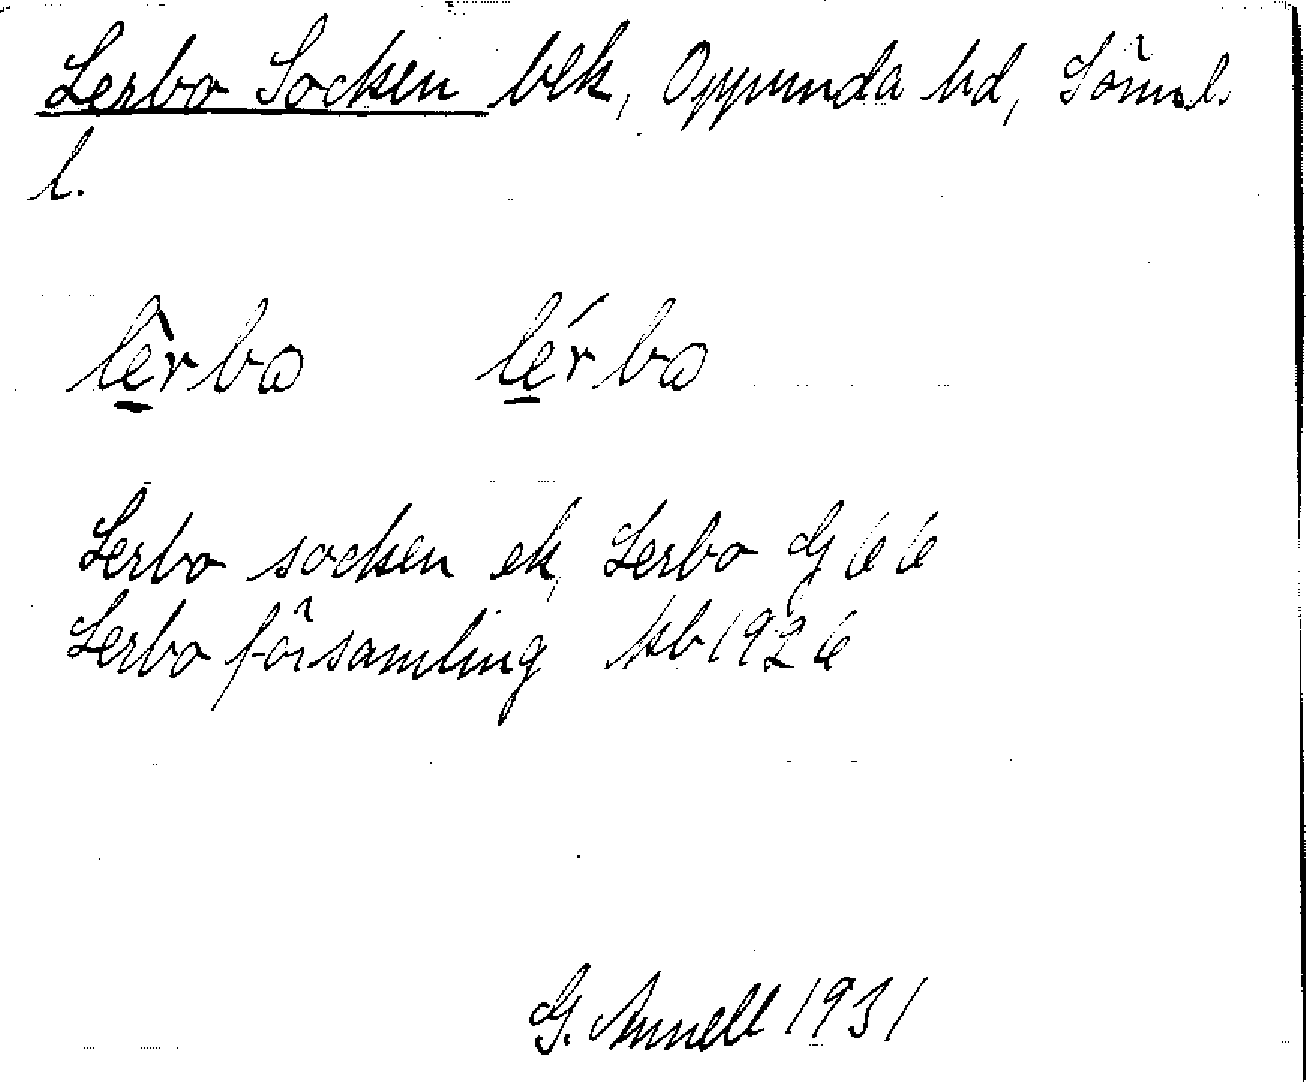 Lerbo Socken blk, Oppunda hd, Sörml.
l.
lèrbo lérbo
Lerbo socken ek, Lerbo GJ 66
Lerbo församling kb 1926
G. Annell 1931